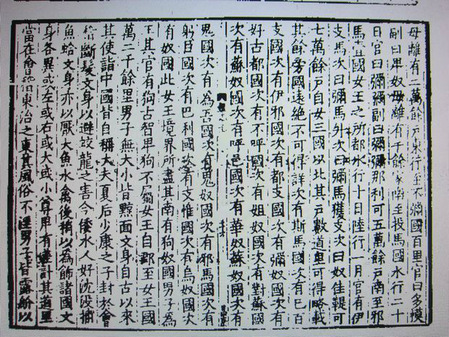 母離有二萬餘戶東行至不彌國百里官曰多模
副曰卑奴母離有千餘家南至投馬國水行二十
日官曰彌彌副曰彌彌那利可五萬餘戶南至邪
馬壹國女王之所都水行十日陸行一月官有伊
支馬次曰彌馬升次曰彌馬獲支次曰奴佳鞮可
七萬餘戶自女王國以北其戶數道里可得略載
其餘旁國遠絶不可得詳次有斯馬國次有已百
支國次有伊邪國次有都支國次有彌奴國次有
好古都國次有不呼國次有姐奴國次有對蘇國
次有蘇奴國次有呼邑國次有華奴蘇奴國次有
鬼國次有爲吾國次有鬼奴國次有邪馬國次有
躬臣國次有巴利國次有支惟國次有烏奴國次
有奴國此女王境界所盡其南有狗奴國男子爲
王其官有狗古智卑狗不屬女王自郡至女王國
萬二千餘里男子無大小皆黥面文身自古以來
其使詣中國皆自稱大夫夏后少康之子封於會
稽斷髮文身以避蛟龍之害今倭水人好沈沒捕
魚蛤文身亦以厭大魚水禽後稍以爲飾諸國文
身各異或左或右或大或小尊卑有差計其道里
當在會稽東治之東其風俗不淫男子皆露紒以